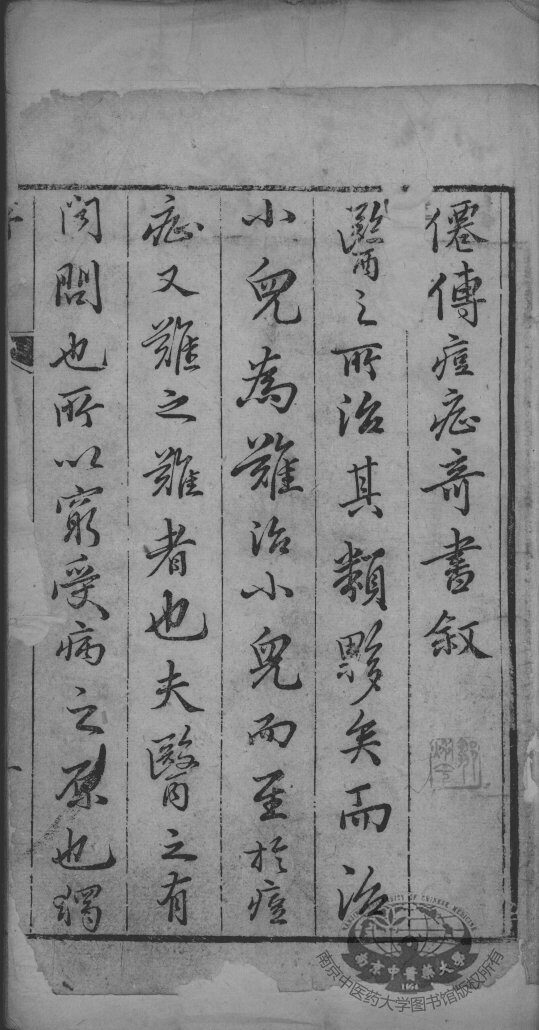 僊傳痘症奇書叙
醫之所治其類夥矣而治
小兒為難治小兒而至於痘
症又難之難者也夫醫之有
問也所以窮受病之原也
南京中醫藥大學
1954
南京中医药大学图书馆版权所有